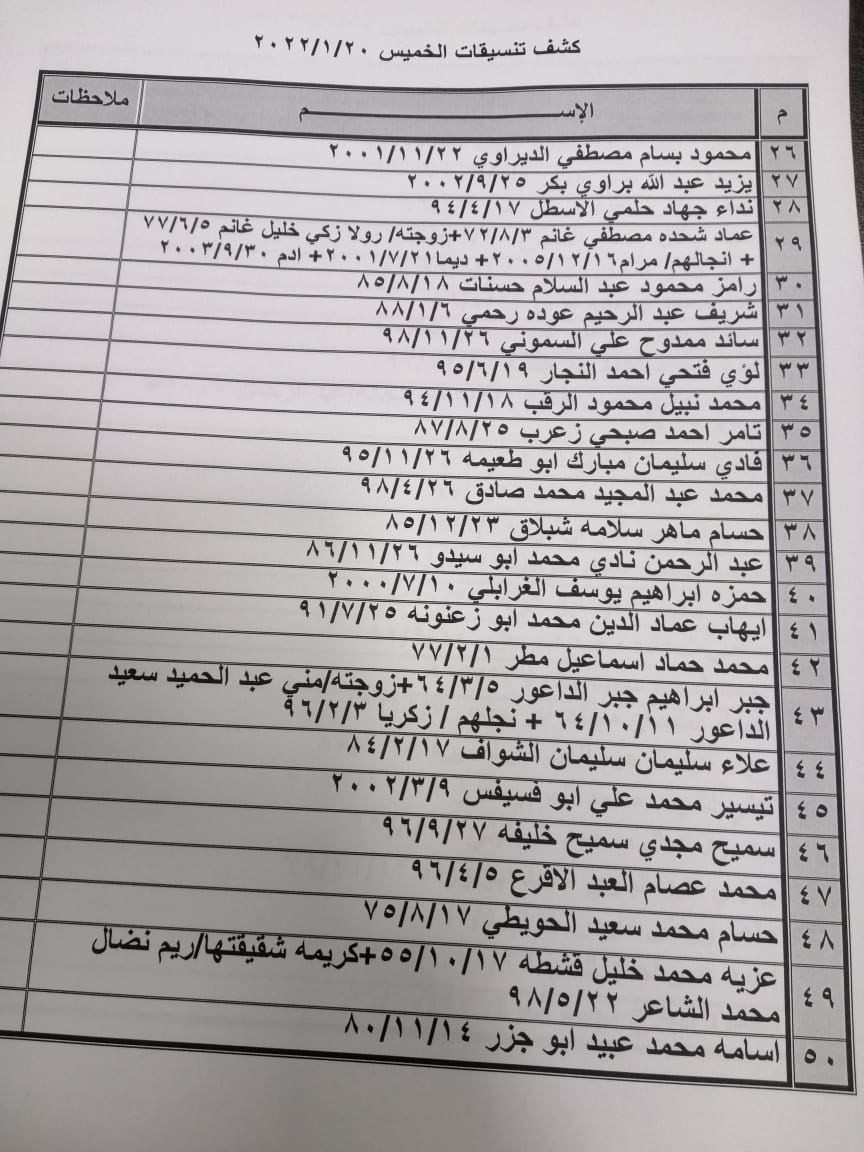 كشف تنسيقات الخميس ٢٠٢٢/١/٢٠
م الإســــــم ملاحظات
٢٦ محمود بسام مصطفي الديراوي ٢٠٠١/١١/٢٢
٢٧ يزيد عبد الله براوي بكر ٢٠٠٢/٩/٢٥
٢٨ نداء جهاد حلمي الاسطل ٩٤/٤/١٧
٢٩ عماد شحده مصطفي غانم ٧٢/٨/٣+زوجته/ رولا زكي خليل غانم ٧٧/٦/٥
+ انجالهم/ مرام٢٠٠٥/١٢/١٦+ ديما٢٠٠١/٧/٢١+ ادم ٢٠٠٣/٩/٣٠
٣٠ رامز محمود عبد السلام حسنات ٨٥/٨/١٨
٣١ شريف عبد الرحيم عوده رحمي ٨٨/١/٦
٣٢ سائد ممدوح علي السموني ٩٨/١١/٢٦
٣٣ لؤي فتحي احمد النجار ٩٥/٦/١٩
٣٤ محمد نبيل محمود الرقب ٩٤/١١/١٨
٣٥ تامر احمد صبحي زعرب ٨٧/٨/٢٥
٣٦ فادي سليمان مبارك ابو طعيمه ٩٥/١١/٢٦
٣٧ محمد عبد المجيد محمد صادق ٩٨/٤/٢٦
٣٨ حسام ماهر سلامه شبلاق ٨٥/١٢/٢٣
٣٩ عبد الرحمن نادي محمد ابو سيدو ٨٦/١١/٢٦
٤٠ حمزه ابراهيم يوسف الغرابلي ٢٠٠٠/٧/١٠
٤١ ايهاب عماد الدين محمد ابو زعنونه ٩١/٧/٢٥
٤٢ محمد حماد اسماعيل مطر ٧٧/٢/١
٤٣ جبر ابراهيم جبر الداعور ٦٤/٣/٥+زوجته/مني عبد الحميد سعيد
الداعور ٦٤/١٠/١١ + نجلهم / زكريا ٩٦/٢/٣
٤٤ علاء سليمان سليمان الشواف ٨٤/٢/١٧
٤٥ تيسير محمد علي ابو فسيفس ٢٠٠٢/٣/٩
٤٦ سميح مجدي سميح خليفه ٩٦/٩/٢٧
٤٧ محمد عصام العبد الاقرع ٩٦/٤/٥
٤٨ حسام محمد سعيد الحويطي ٧٥/٨/١٧
٤٩ عزيه محمد خليل قشطه ٥٥/١٠/١٧+كريمه شقيقتها/ريم نضال
محمد الشاعر ٩٨/٥/٢٢
٥٠ اسامه محمد عبيد ابو جزر ٨٠/١١/١٤